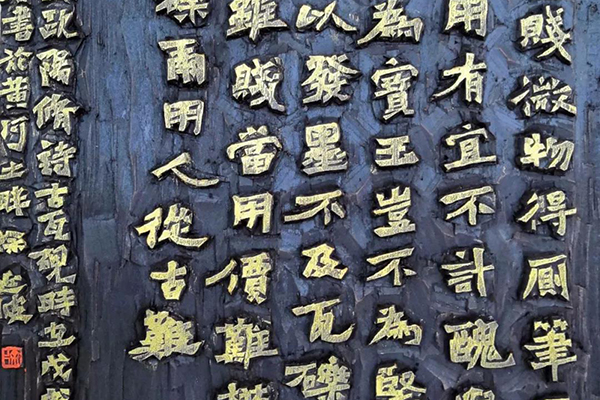 賤微物得厠筆
用有宜不計醜
為寶王豈不為堅
以發墨不及瓦礫
雖賤當用價難
礫爾明人從古難
歐陽脩詩古瓦硯時在戊戌
書於黃河之畔